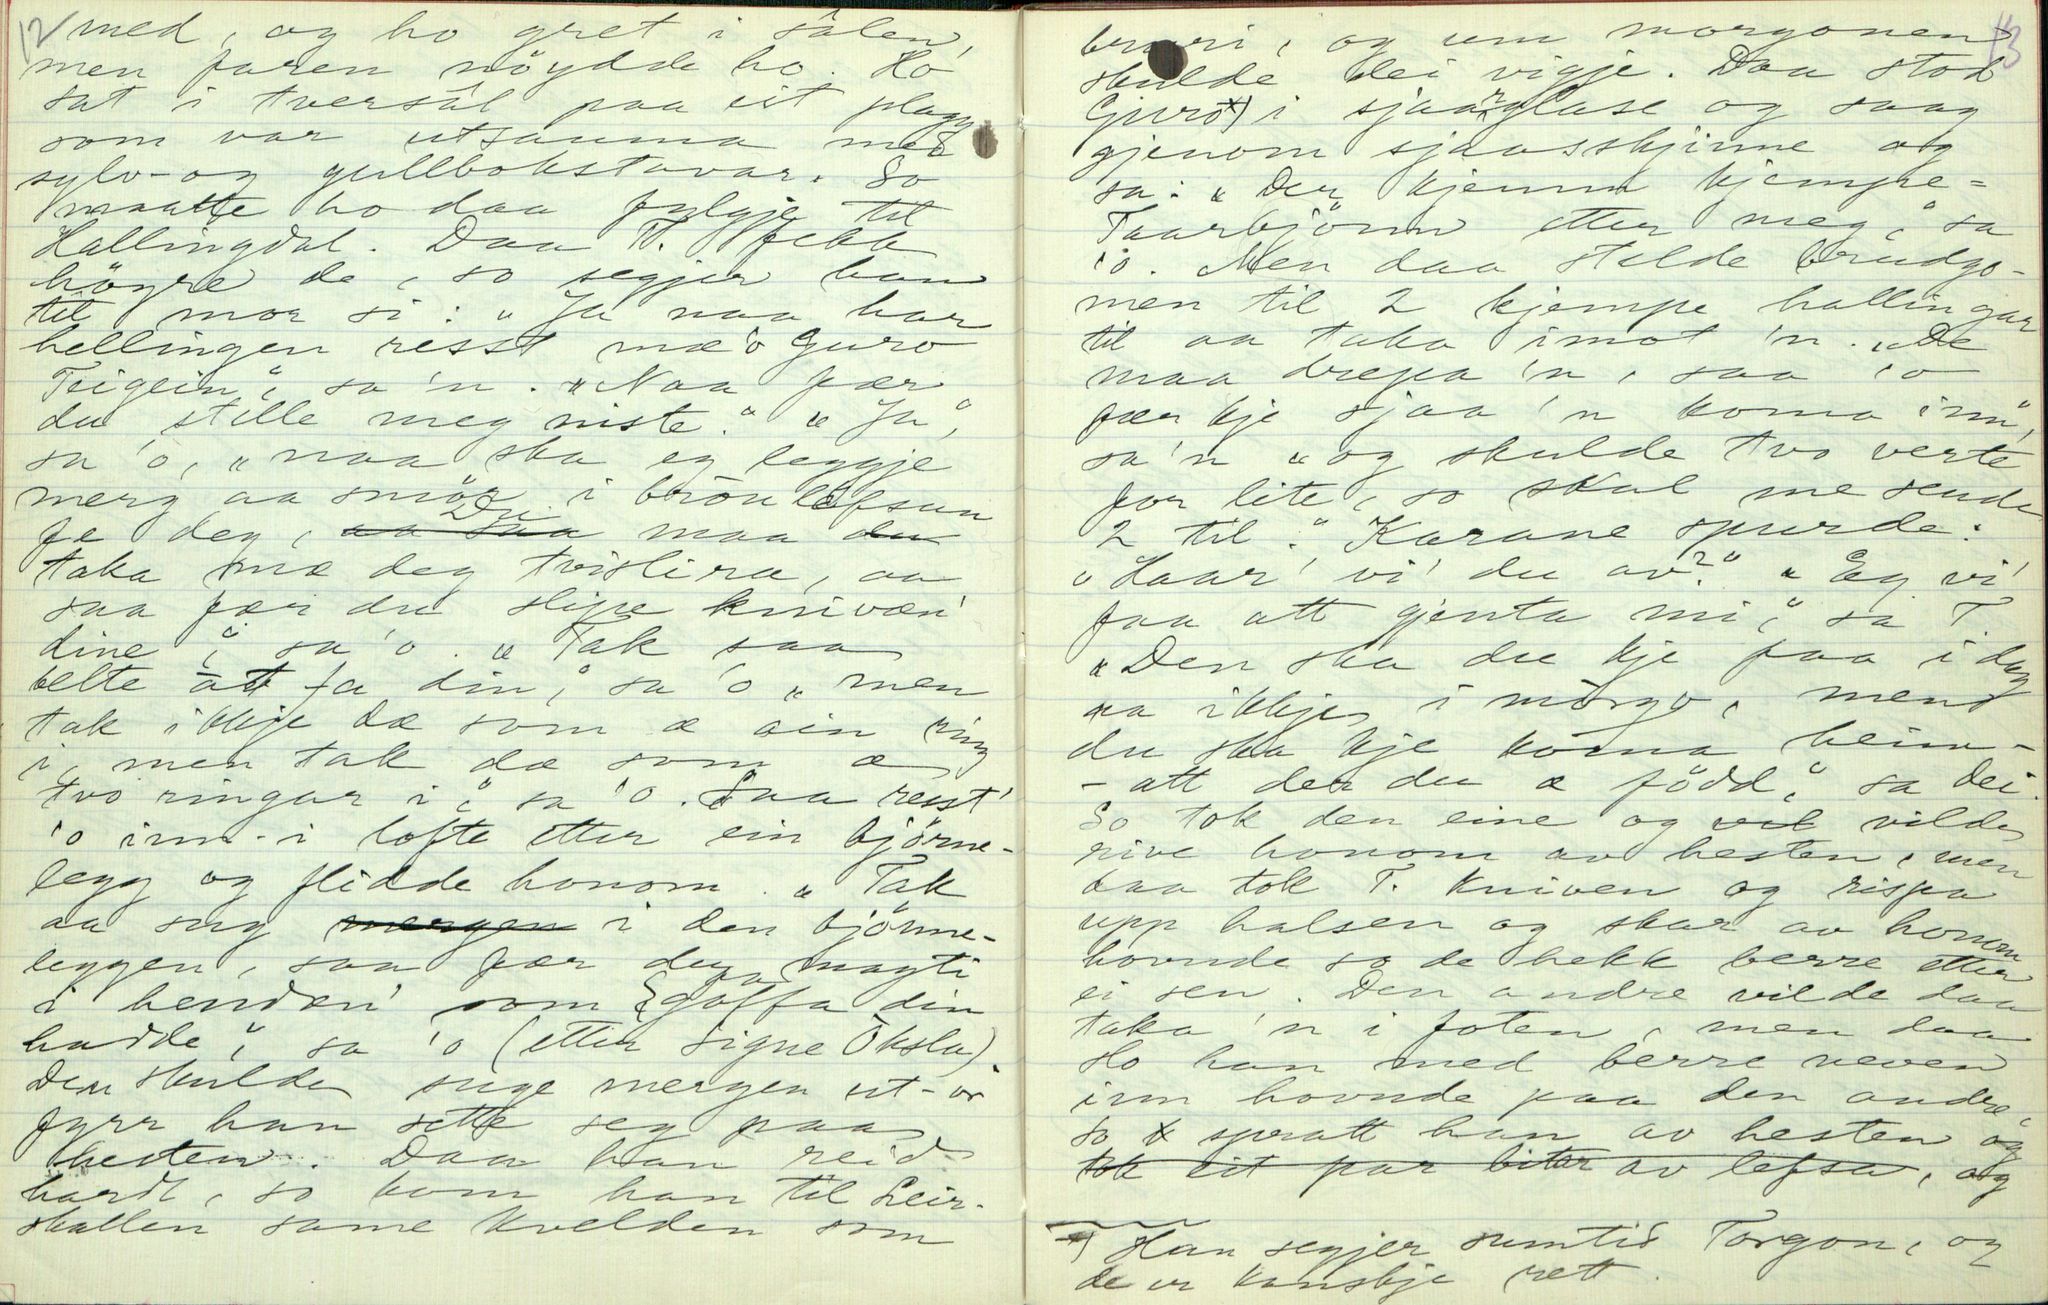 12
med, og ho gret i sålen,
men faren nöydde ho. Ho
sat i tversål paa eit plagg
som var utsauma med
sylv- og gullbokstavar. So
maatte ho daa fylgje til
Hallingdal. Daa T. fekk
höyre de, so segjer han
til mor si: "Ja naa har
hellingen resst mæ 'o Guro
Teigein", sa 'n. "Naa fær
du stille meg niste." "Ja",
sa 'o, "naa ska eg leggje
merg aa smör i brönlefsun
fe deg, aa saa Du maa du
taka mæ deg tvislira, aa
saa fær du slipe knivæn'
dine", sa 'o. "Tak saa
belte åt fa din", sa 'o "men
tak ikkje dæ som æ åin ring
i, men tak dæ som æ
tvo ringar i", sa 'o. Saa resst'
'o inn-i lofte etter ein björne-
legg og flidde honom. "Tak
aa sug mergen i den björne-
leggen, saa fær du magti
i hendæn' som goffa din
hadde", sa 'o (etter Signe Öksla).
Den skulde suge mergen ut-or
fyrr han sette seg paa
hesten. Daa han reid
hardt, so kom han til Leir-
skallen same kvelden som
13
bruri, og um morgonen
skulde dei vigje. Daa stod
Guro x) i sjaarglase og saag
gjenom sjaasskjinne og
sa: "Der kjemm kjempe-
Taarbjönn etter meg", sa
'o. Men daa stelde brudgo-
men til 2 kjempe hallingar
til aa taka imot 'n. "De
maa drepa 'n, saa 'o
fær kje sjaa 'n koma inn",
sa 'n "og skulde tvo verte
for lite, so skal me sende
2 til." Karane spurde:
"Haar' vi' du av?" "Eg vi'
faa att gjenta mi", sa T.
"Den ska du kje faa i dag
aa ikkje i mörgo, men
du ska kje koma heim-
-att der du æ född", sa dei.
So tok den eine og vil vilde
rive honom av hesten, men
daa tok T. kniven og rispa
upp halsen og skar av honom
hovude so de hekk berre etter
ei sen. Den andre vilde daa
taka 'n i foten, men daa
slo han med berre neven
inn hovude paa den andre.
So spratt han av hesten og
tok eit par bitar av lefsa, og
x) Han segjer sumtid Torgon, og
de er kanskje rett.